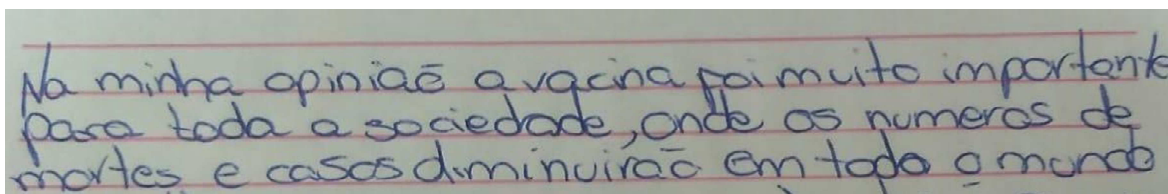 Na minha opinião a vacina foi muito importante
para toda a sociedade, onde os numeros de
mortes e casos diminuirão em todo o mundo